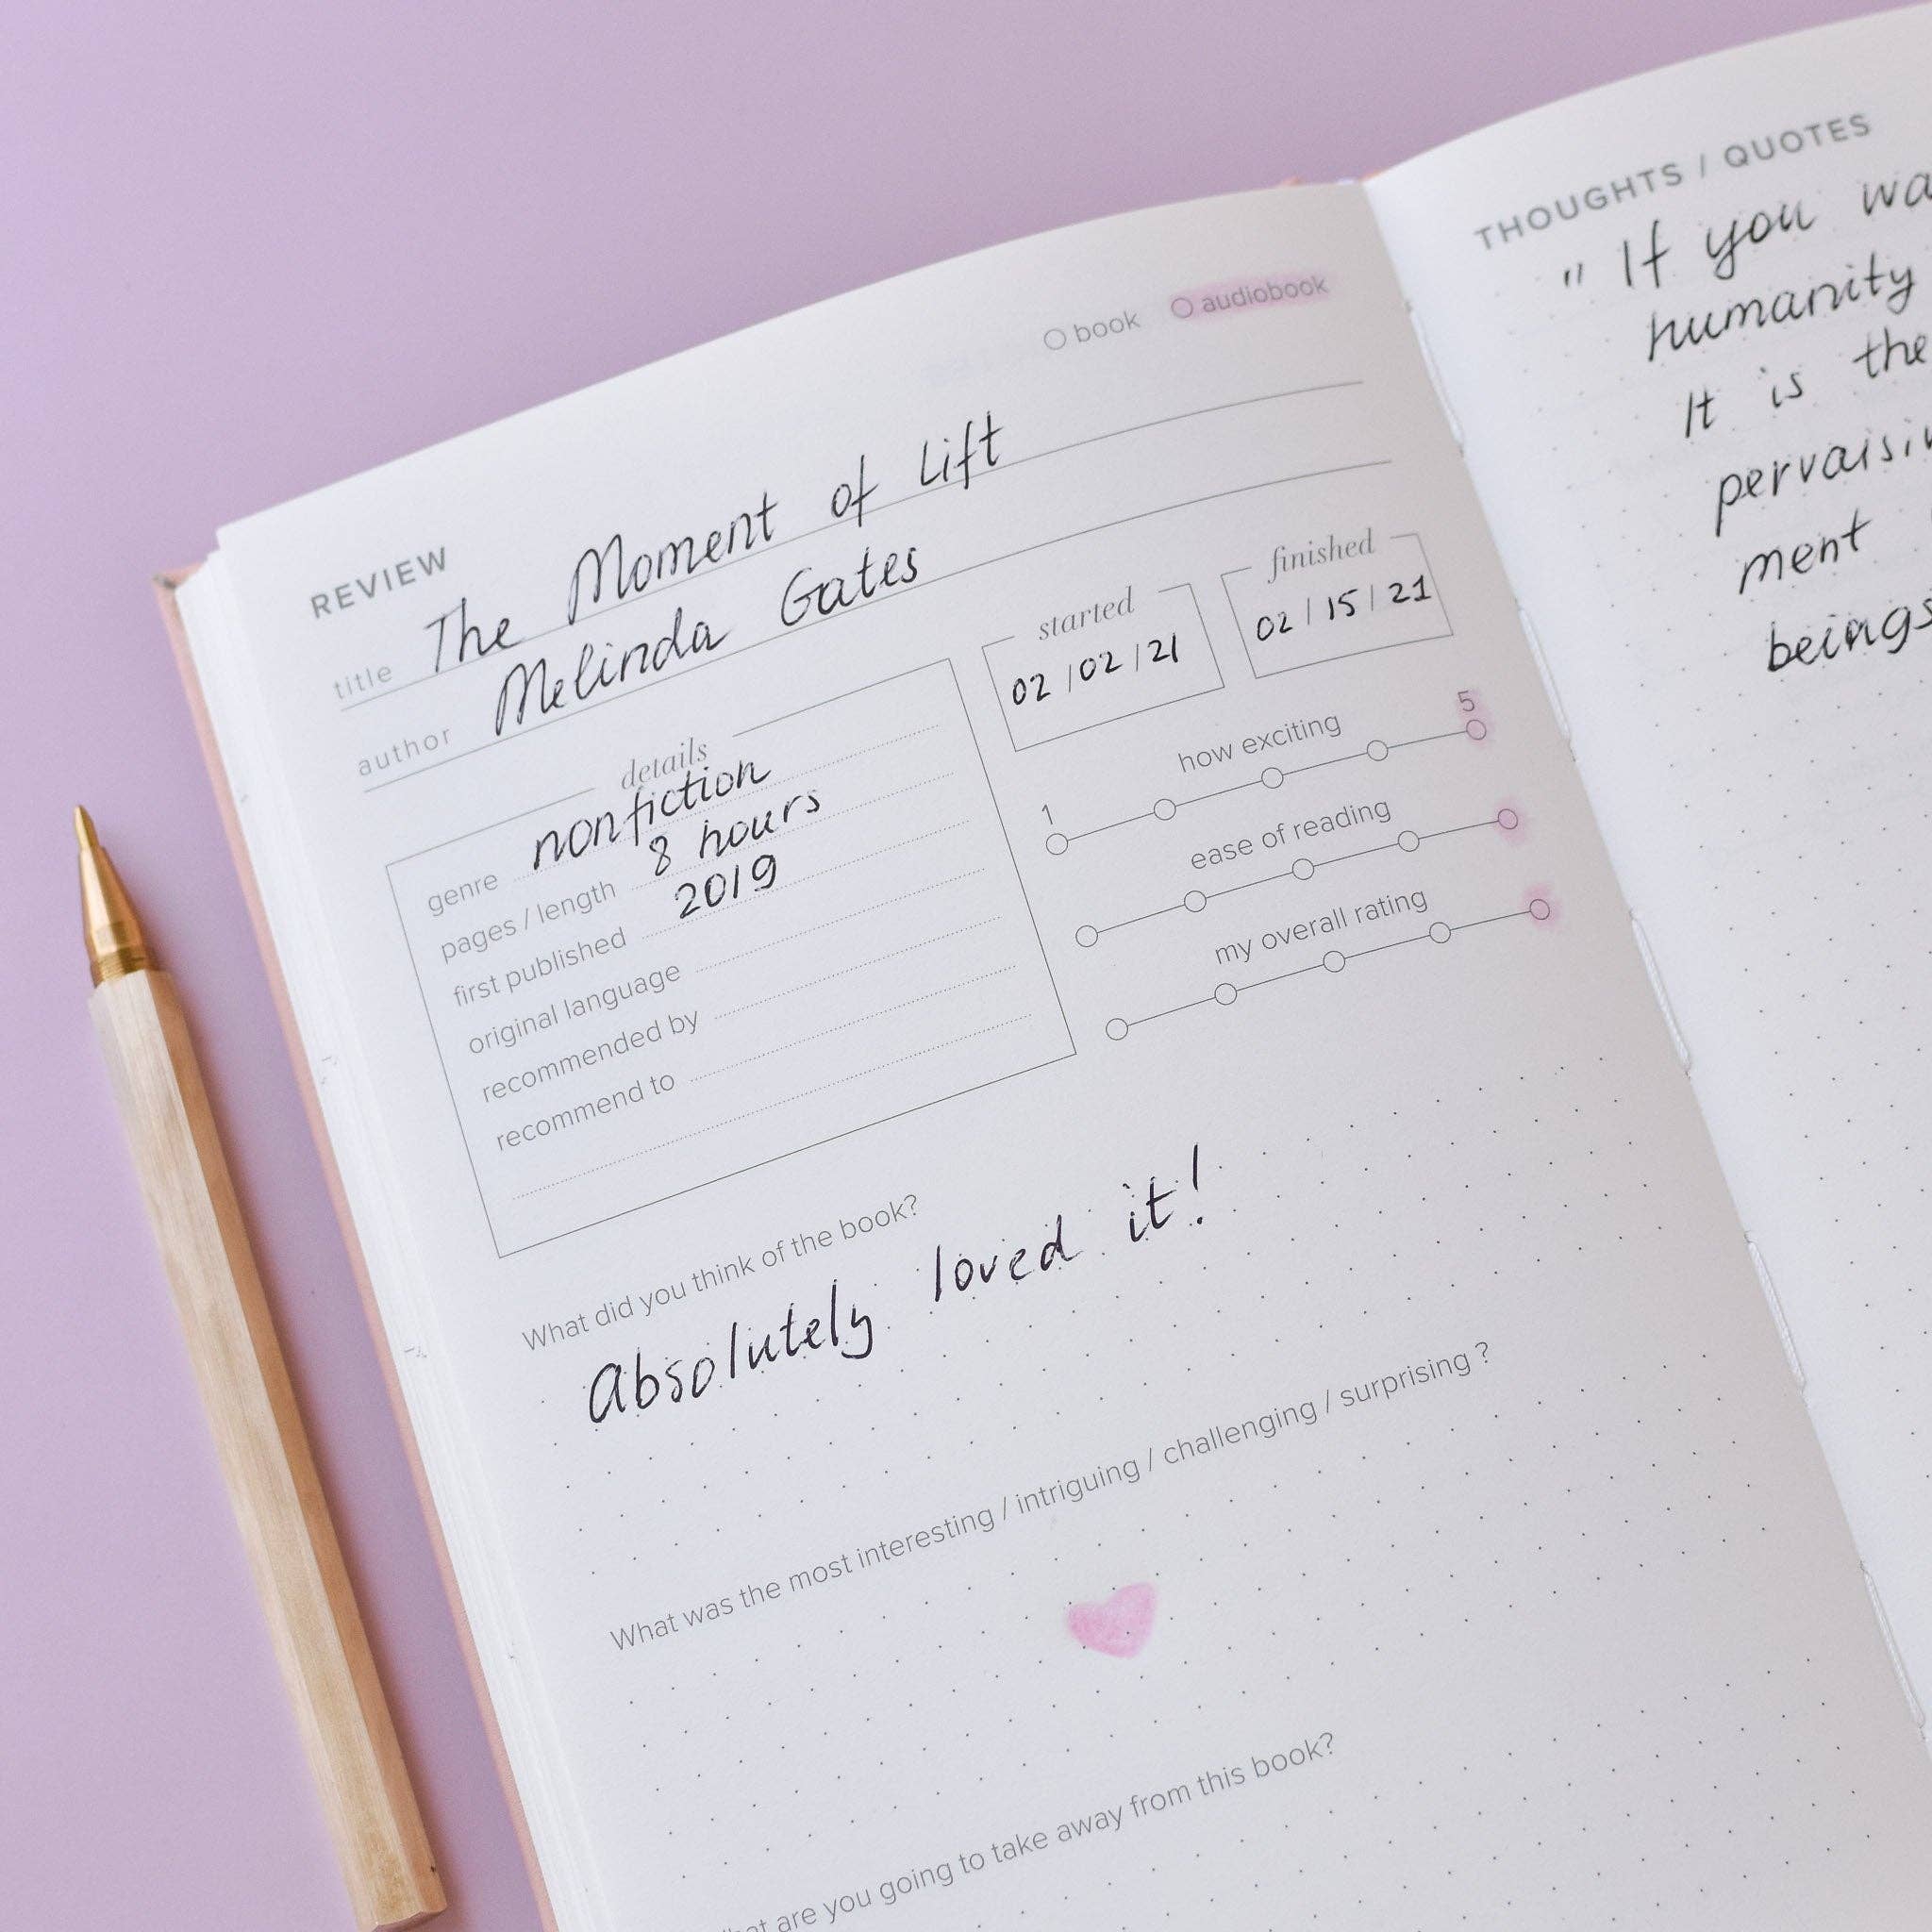 book audiobook
REVIEW
title The Moment of Lift
author Melinda Gates
details
genre nonfiction
pages / length 8 hours
first published 2019
original language
recommended by
recommend to
started
02/02/21
finished
02/15/21
how exciting
1 5
ease of reading
my overall rating
What did you think of the book?
Absolutely loved it!
What was the most interesting / intriguing / challenging / surprising ?
are you going to take away from this book?
THOUGHTS / QUOTES
" If you
humanity
It is the
ment
beings